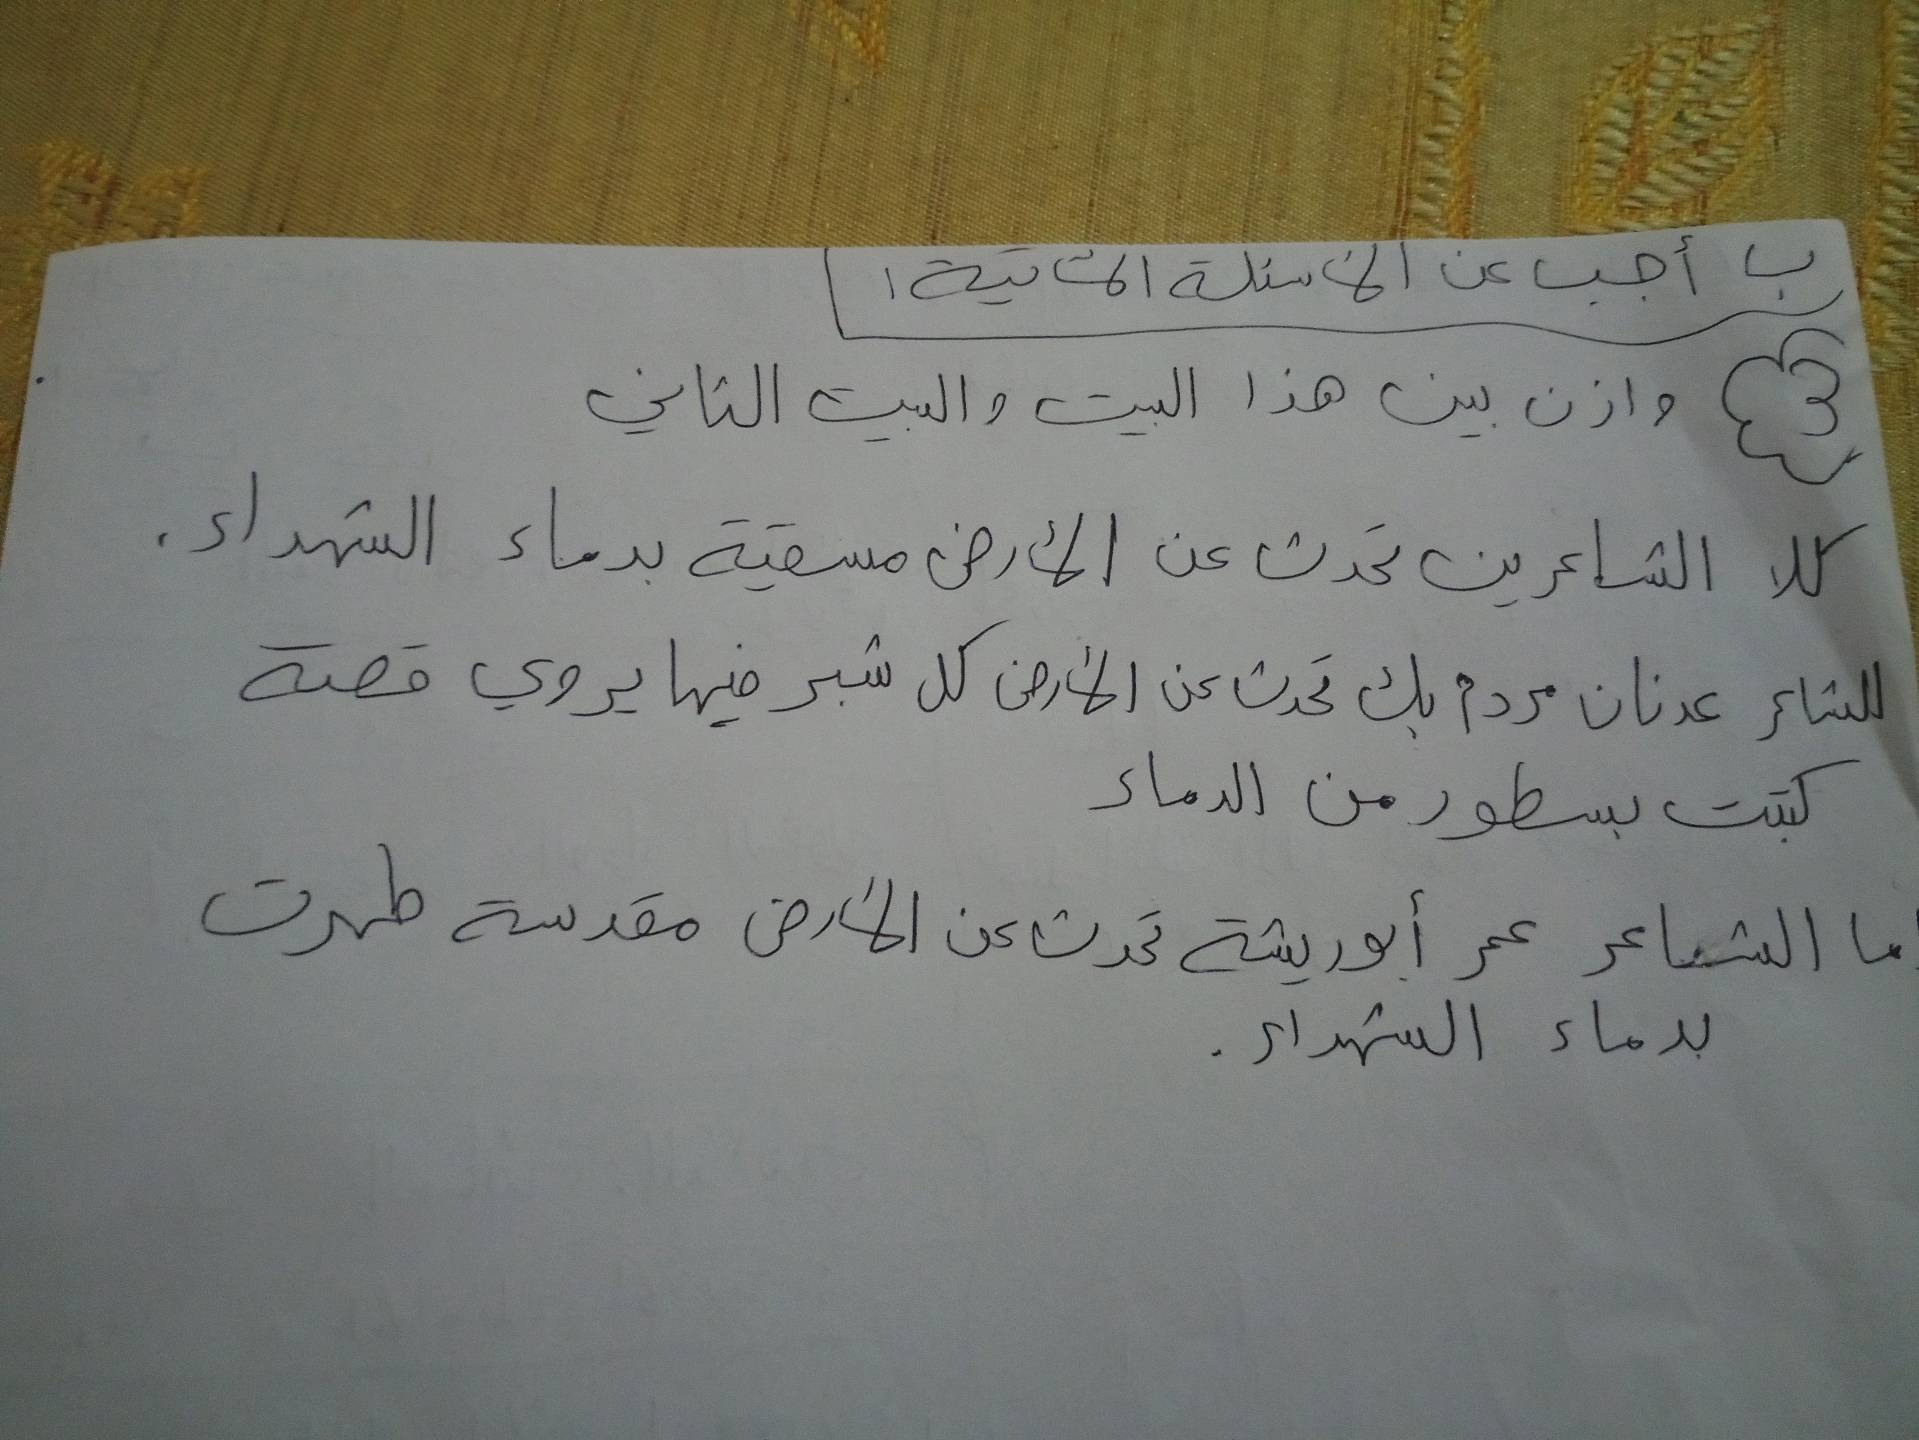 ب أجب عن الأسئلة الآتية:
3 وازن بين هذا البيت والبيت الثاني
كلا الشاعرين تحدث عن الأرض مسقية بدماء الشهداء.
الشاعر عدنان مردم بك تحدث عن الأرض كل شبر فيها يروي قصة
كتبت بسطور من الدماء
اما الشاعر عمر أبو ريشة تحدث عن الأرض مقدسة طهرت
بدماء الشهداء.